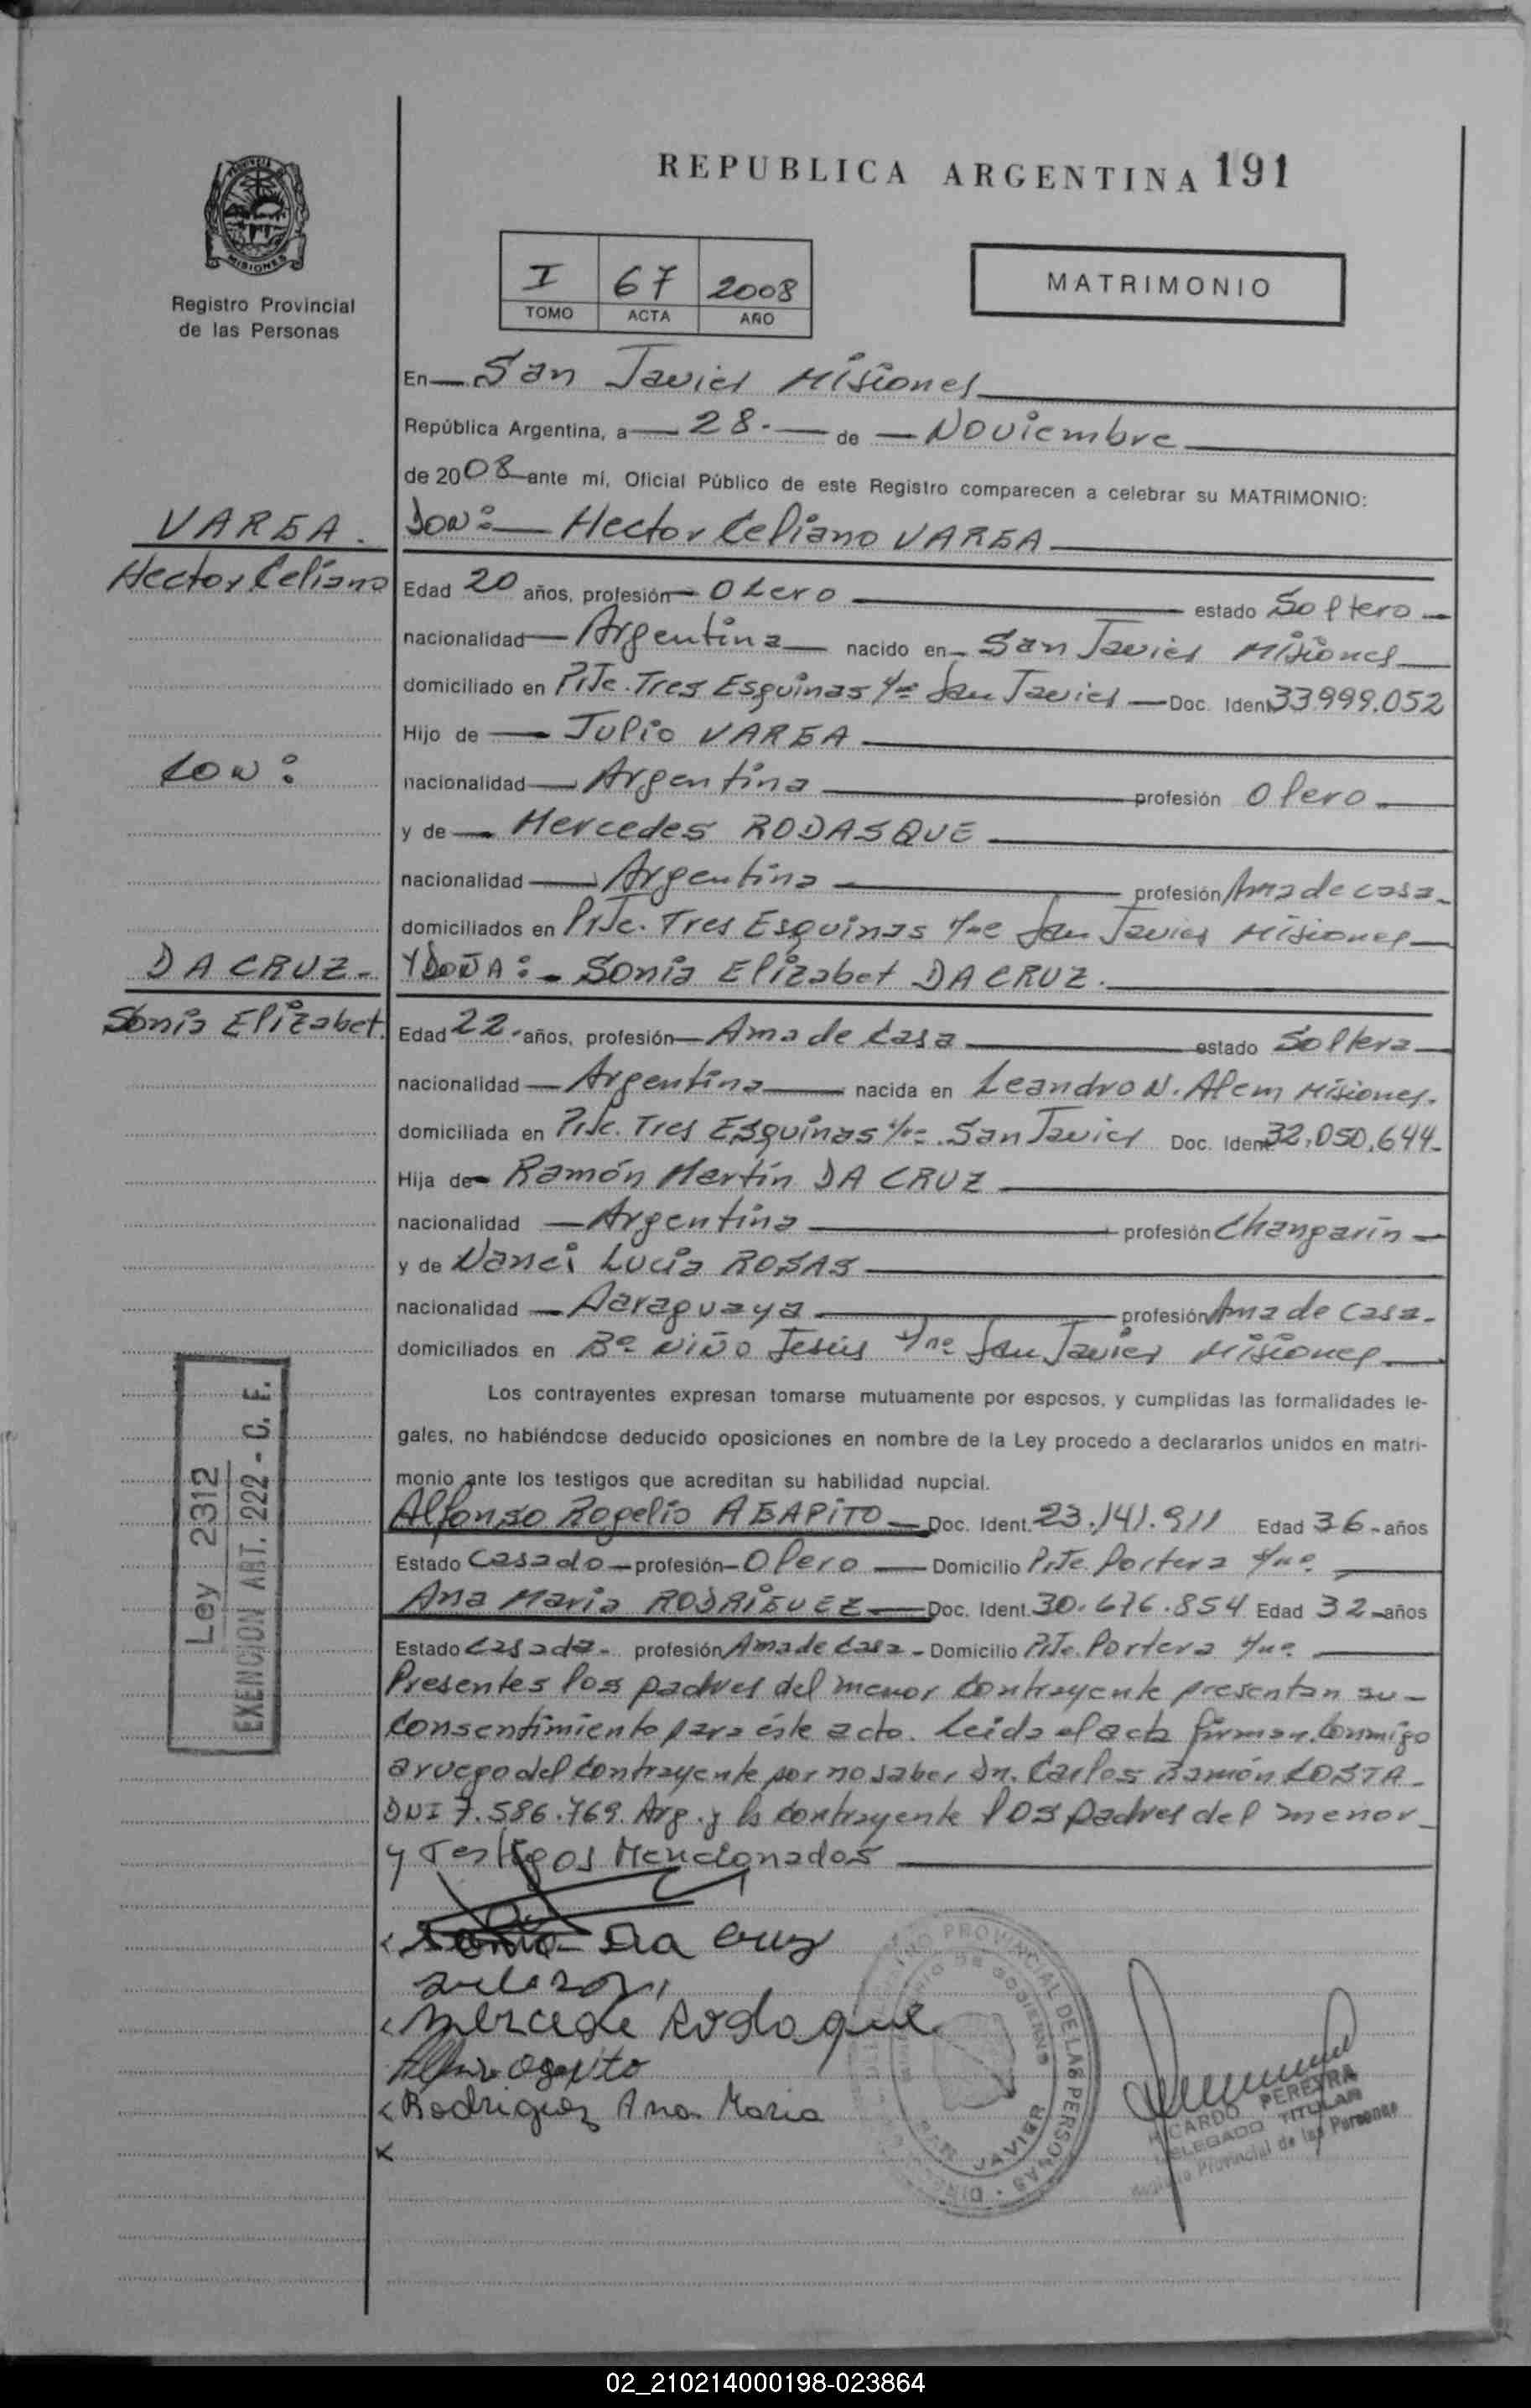 REPUBLICA ARGENTINA 191
MISIONES
Registro Provincial
de las Personas
I 67 2008
TOMO ACTA AÑO
MATRIMONIO
En San Javier Misiones
República Argentina, a 28.- de Noviembre
de 2008 ante mí, Oficial Público de este Registro comparecen a celebrar su MATRIMONIO:
VARGA.
Hector Celiano
DON: Hector Celiano VARGA
Edad 20 años, profesión Obrero estado Soltero
nacionalidad Argentina nacido en San Javier Misiones
domiciliado en Pje. Tres Esquinas s/nº San Javier Doc. Ident. 33.999.052
Hijo de Julio VARGA
CON:
nacionalidad Argentina profesión Obrero.
y de Mercedes RODASQUE
nacionalidad Argentina profesión Ama de casa.
domiciliados en Pje. Tres Esquinas s/nº San Javier Misiones
DA CRUZ.
Sonia Elizabet.
Y DOÑA: Sonia Elizabet DA CRUZ.
Edad 22 años, profesión Ama de Casa estado Soltera
nacionalidad Argentina nacida en Leandro N. Alem Misiones.
domiciliada en Pje. Tres Esquinas s/nº San Javier Doc. Ident. 32.050.644
Hija de Ramón Martín DA CRUZ
nacionalidad Argentina profesión Changarín
y de Nanci Lucia ROSAS
nacionalidad Paraguaya profesión Ama de Casa.
domiciliados en Bº Niño Jesús s/nº San Javier Misiones
Los contrayentes expresan tomarse mutuamente por esposos, y cumplidas las formalidades le-
gales, no habiéndose deducido oposiciones en nombre de la Ley procedo a declararlos unidos en matri-
monio ante los testigos que acreditan su habilidad nupcial.
Ley 2312
EXENCION ART. 222 - C. F.
Alfonso Rogelio AGAPITO Doc. Ident. 23.141.911 Edad 36 años
Estado Casado profesión Obrero Domicilio Pje. Portera s/nº
Ana Maria RODRIGUEZ Doc. Ident. 30.676.854 Edad 32 años
Estado Casada profesión Ama de Casa Domicilio Pje. Portera s/nº
Presentes los padres del menor Contrayente presentan su
Consentimiento para éste acto. Leida el acta firman Conmigo
a ruego del Contrayente por no saber Dn. Carlos Ramón COSTA
DNI 7.586.769. Arg. y la Contrayente los padres del menor
y Testigos Mencionados
Sonia Da Cruz
Mercede Rodaque
Agapito
Rodriguez Ana Maria
PROVINCIAL DE LAS PERSONAS
MINISTERIO DE GOBIERNO
SAN JAVIER
RICARDO PEREYRA
DELEGADO TITULAR
Registro Provincial de las Personas
02_210214000198-023864